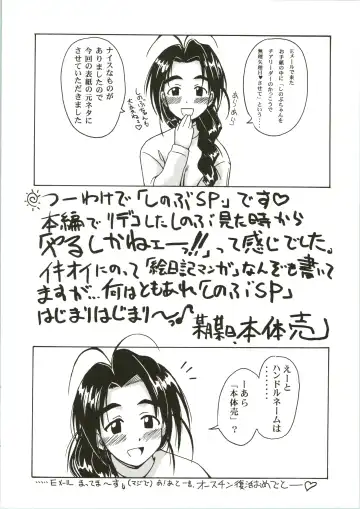 Eメールで来た
お手紙の中に「しのぶちゃんを
チアリーダーのかっこうで
無理矢理日♥させて」という…
あらあら
しのぶちゃんも
大変ねェ♡
ナイスなものが
ありましたので
今回の表紙の元ネタに
させていただきました
つーわけで「しのぶSP」です♡
本編でリデコしたしのぶ見た時から
「やるしかねェーっ!!」って感じでした。
イキオイにのって「絵日記マンガ」なんぞも書いて
ますが…何はともあれ「しのぶSP」
はじまりはじまり〜っ♪
本体売
えーと
ハンドルネームは
………
ーあら
「本体売」?
……Eメール まってま〜す。(マジで) あ!あと一言、オースチン復活おめでとー♡